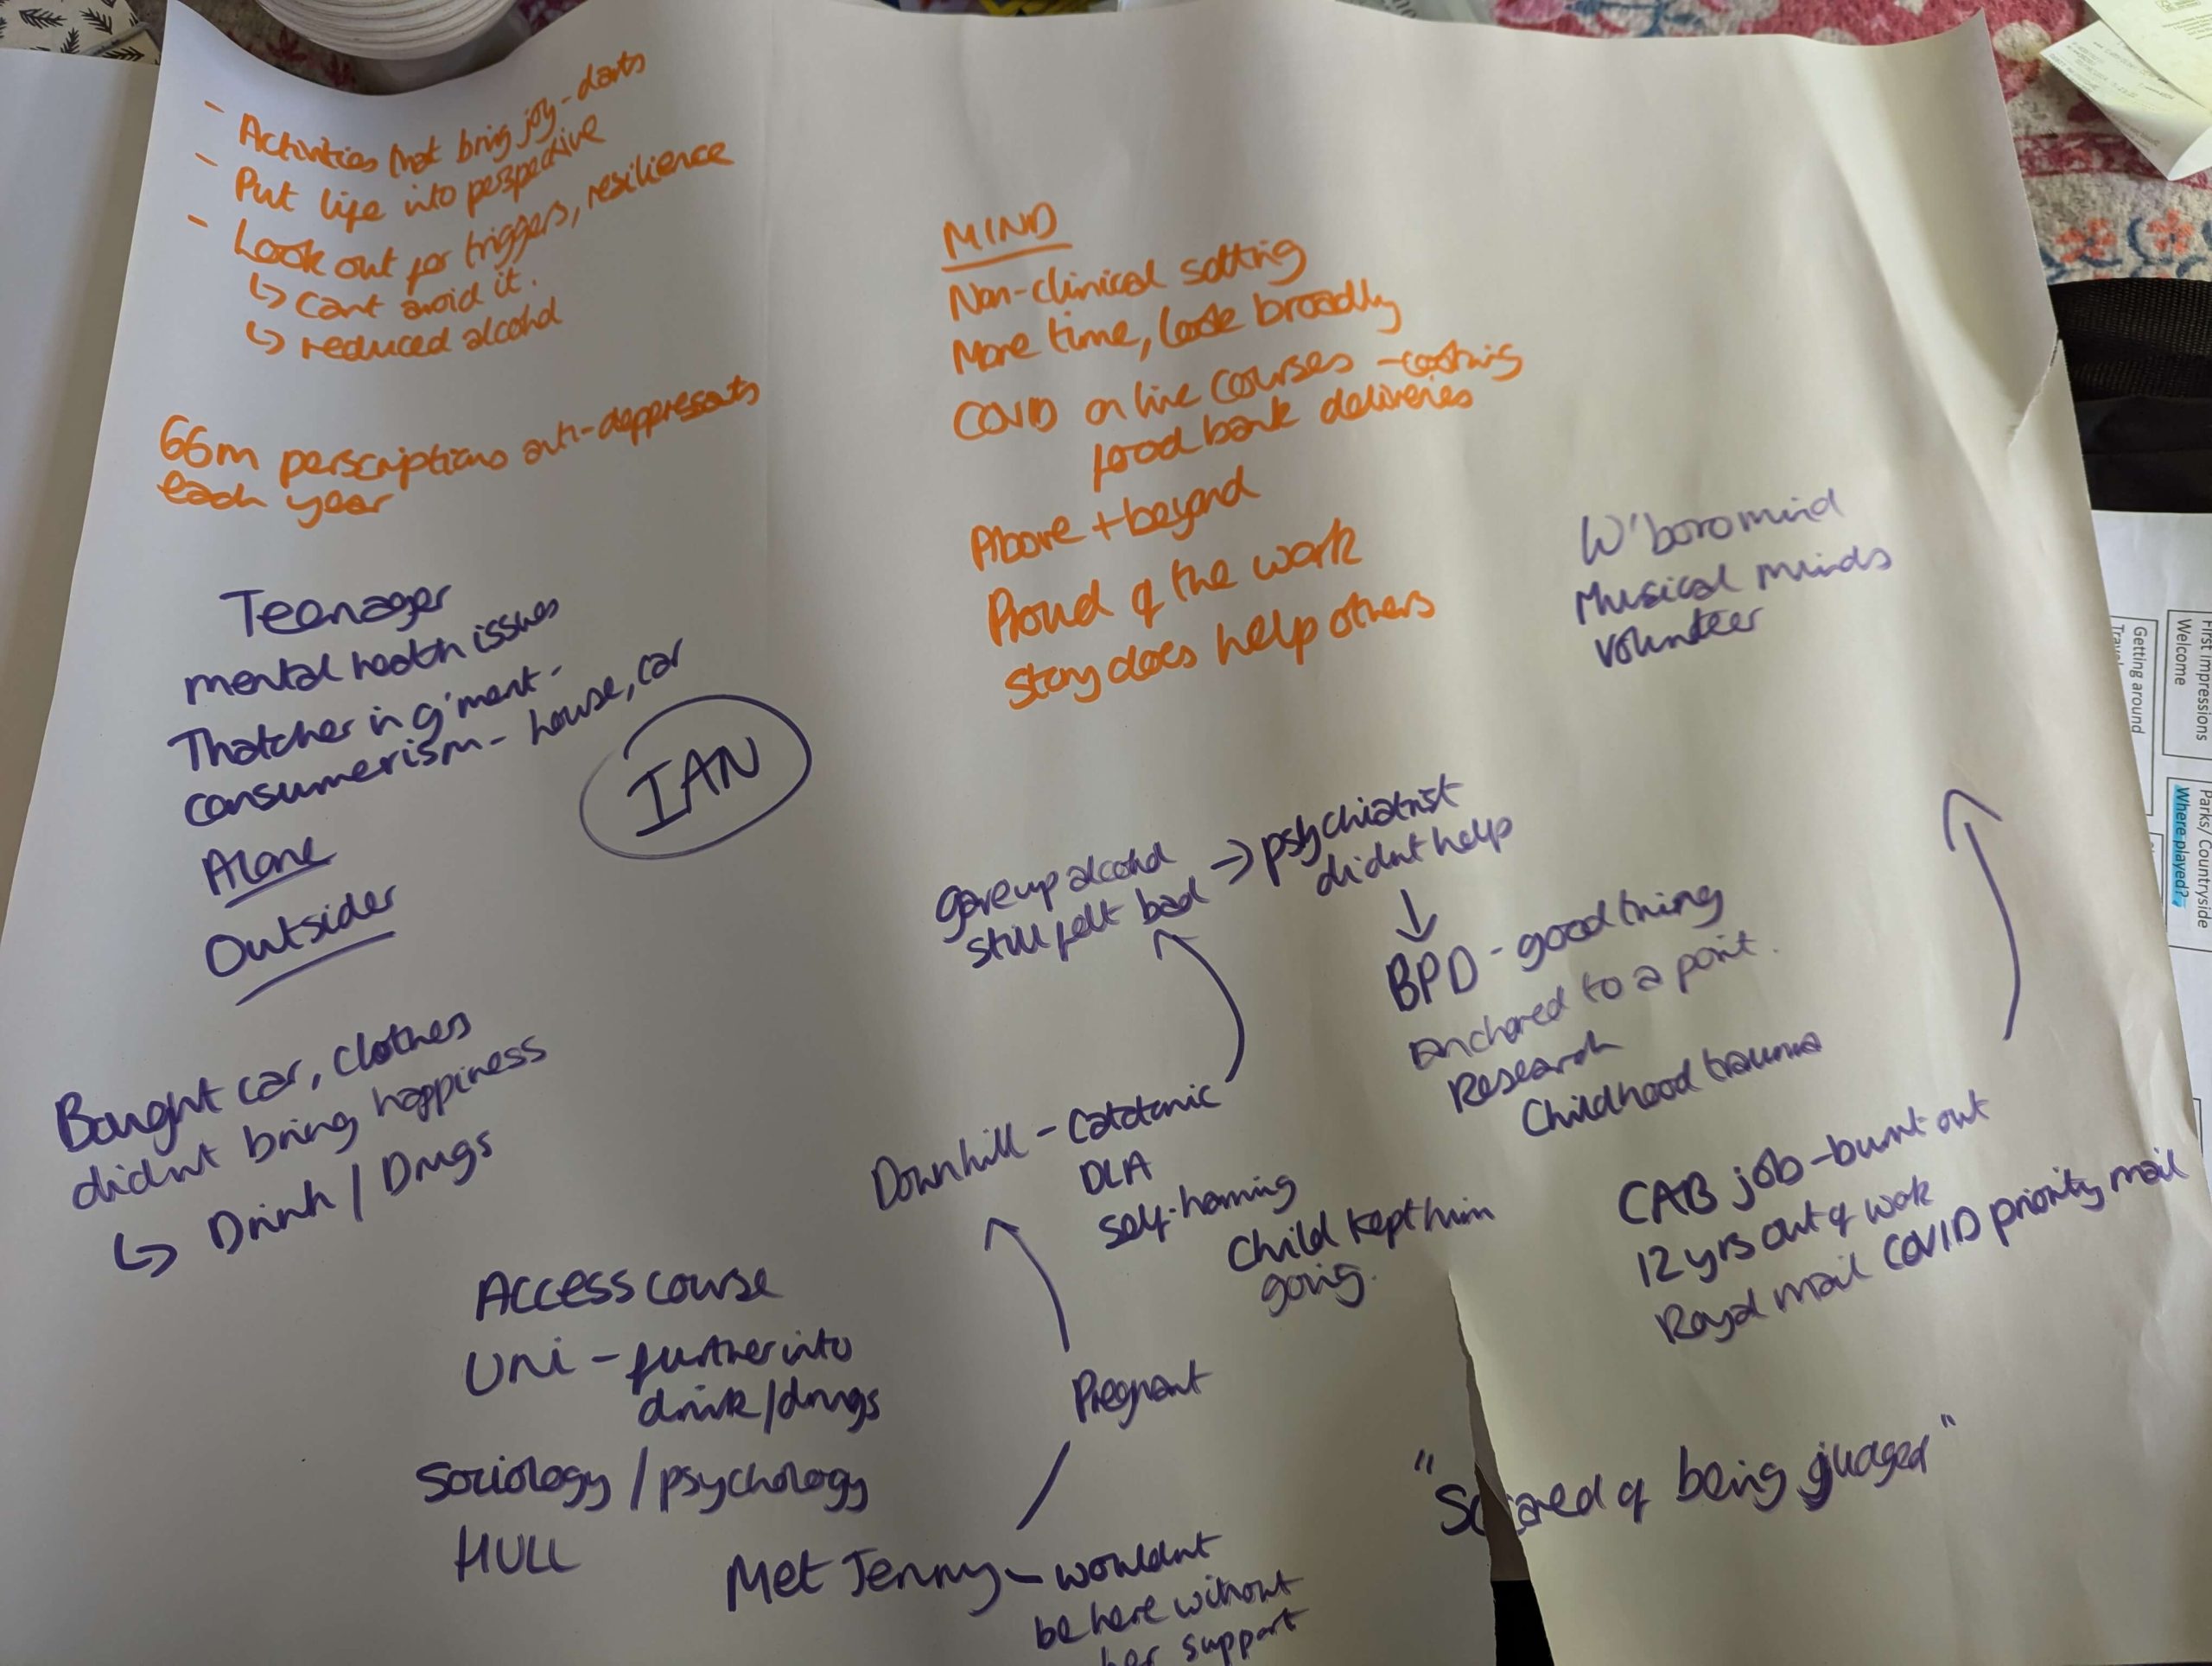 - Activities that bring joy - darts
- Put life into perspective
- Look out for triggers, resilience
↳ cant avoid it.
↳ reduced alcohol
66m perscriptions anti-deppresants
each year
Teenager
mental health issues
Thatcher in g'ment -
consumerism - house, car
Alone
Outsider
IAN
Bought car, clothes
didnt bring happiness
↳ Drink / Drugs
Access course
Uni - further into
drink/drugs
Sociology / psychology
HULL
Met Jenny - wouldnt
be here without
her support
Pregnant
Downhill - Catatonic
DLA
self-harming
Child kept him
going.
gave up alcohol
still felt bad → psychiatrist
didnt help
BPD - good thing
anchored to a point.
Research
Childhood trauma
CAB job - burnt out
12 yrs out of work
Royal mail COVID priority mail
"Scared of being judged"
MIND
Non-clinical setting
More time, look broadly
COVID online courses - cooking
food bank deliveries
Above + beyond
Proud of the work
Story does help others
W'boro mind
Musical minds
volunteer
First impressions
Welcome
Getting around
Parks/ Countryside
Where played?